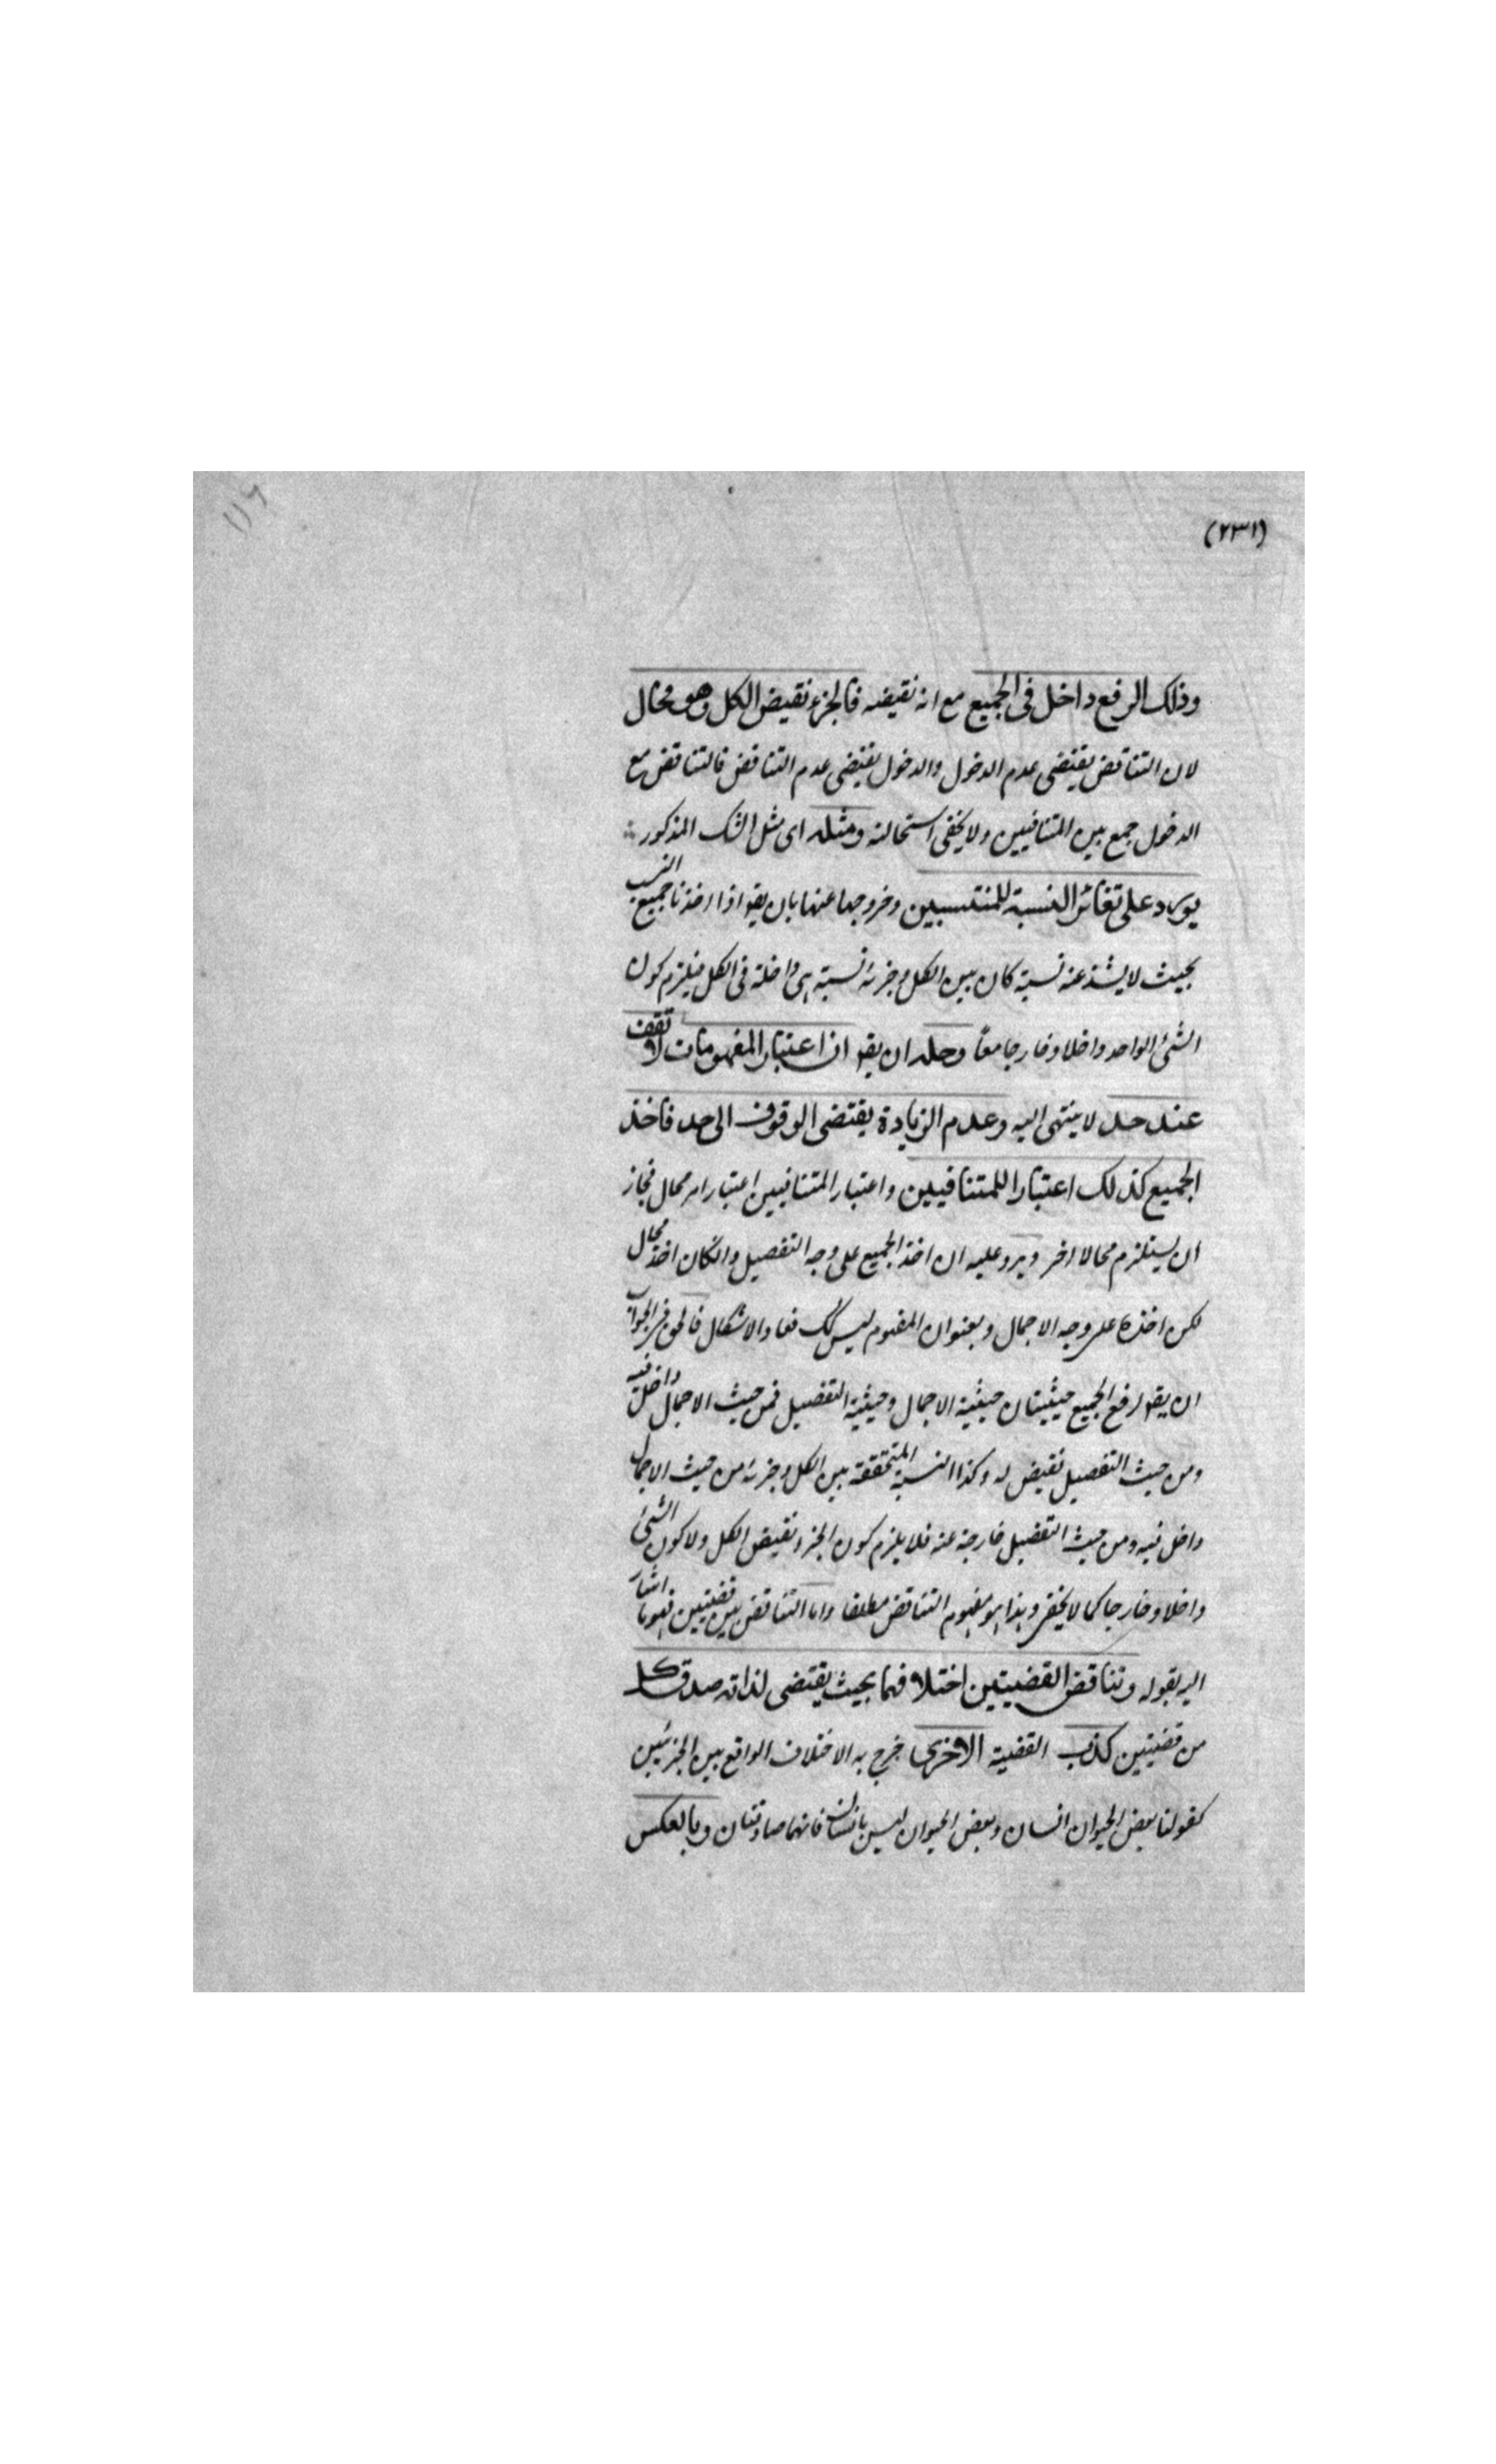 (٢٣١)
١١٦
وذلك الرفع داخل فى الجميع مع انه نقيضه فالجزء نقيض الكل وهو محال
لان التناقض يقتضى عدم الدخول والدخول يقتضى عدم التناقض فالتناقض مع
الدخول جمع بين المتنافيين ولا يخفى استحالته ومثله اى مثل الشك المذكور
يورد على تغائر النسبة للمنتسبين وخروجها عنهما بان يقو اذا اخذنا جميع النسب
بحيث لا يشذ عنه نسبة كان بين الكل وجزئه نسبة هى داخلة فى الكل فيلزم كون
الشئ الواحد داخلا وخارجا معا وحله ان يقو ان اعتبار المفهومات لا تقف
عند حد لا ينتهى اليه وعدم الزيادة يقتضى الوقوف الى حد فاخذ
الجميع كذلك اعتبار للمتنافيين واعتبار المتنافيين اعتبار امر محال فجاز
ان يستلزم محالا اخر ويرد عليه ان اخذ الجميع على وجه التفصيل وانكان اخذ محال
لكن اخذه على وجه الاجمال وبعنوان المفهوم ليس كك فعاد الاشكال فالحق فى الجواب
ان يقو لرفع الجميع حيثيتان حيثية الاجمال وحيثية التفصيل فمن حيث الاجمال داخل فيه
ومن حيث التفصيل نقيض له وكذا النسبة المتحققة بين الكل وجزئه من حيث الاجمال
داخل فيه ومن حيث التفصيل خارجة عنه فلا يلزم كون الجزء نقيض الكل ولا كون الشئ
داخلا وخارجا كما لا يخفى وهذا هو مفهوم التناقض مطلقا واما التناقض بين قضيتين فهو ما اشار
اليه بقوله وتناقض القضيتين اختلافهما بحيث يقتضى لذاته صدق كل
من قضيتين كذب القضية الاخرى خرج به الاختلاف الواقع بين الجزئيين
كقولنا بعض الحيوان انسان وبعض الحيوان ليس بانسان فانهما صادقتان وبالعكس